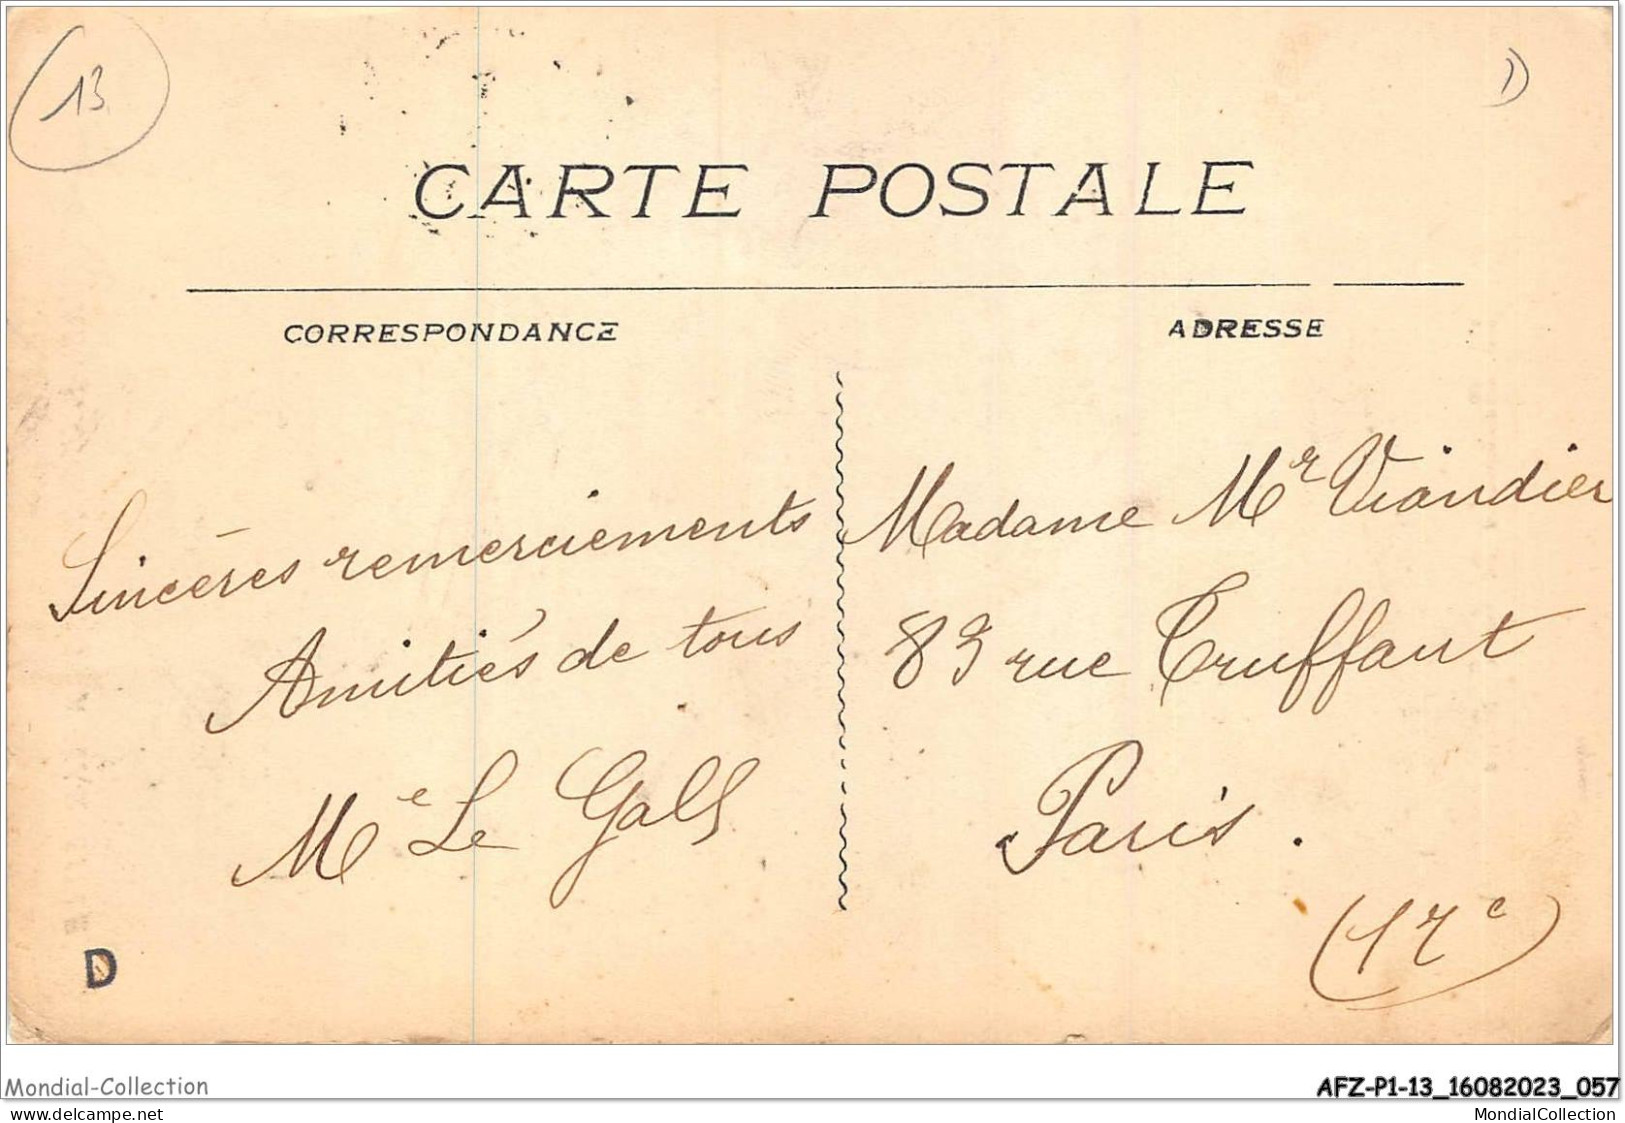 13
D
CARTE POSTALE
CORRESPONDANCE
ADRESSE
Sincères remerciements
Amitiés de tous
Me Le Gall
D
Madame Mr Viandier
83 rue Truffaut
Paris.
(17e)
Mondial-Collection
AFZ-P1-13_16082023_057
www.delcampe.net
MondialCollection